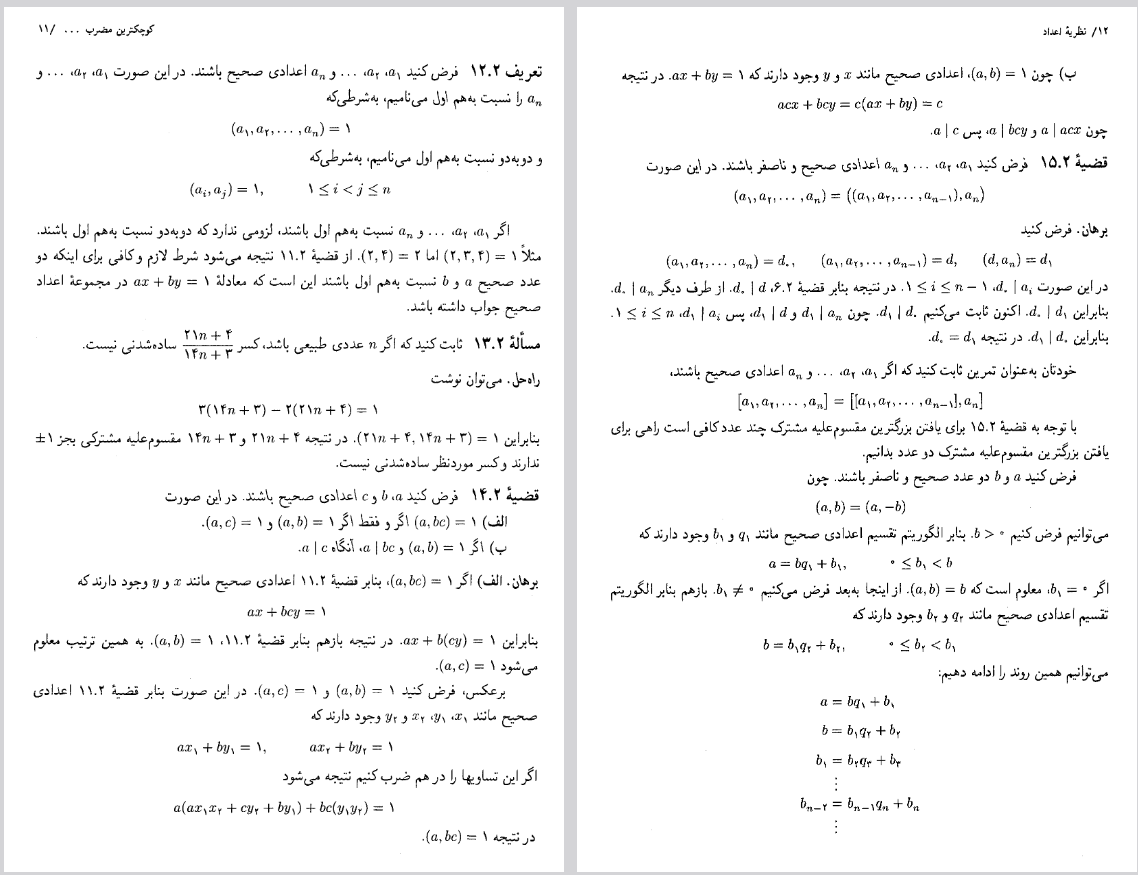 کوچکترین مضرب ... /۱۱
تعریف ۱۲.۲ فرض کنید a₁، a₂، ... و aₙ اعدادی صحیح باشند. در این صورت a₁، a₂، ... و
aₙ را نسبت به‌هم اول می‌نامیم، به‌شرطی‌که
(a₁, a₂, . . . , aₙ) = ۱
و دوبه‌دو نسبت به‌هم اول می‌نامیم، به‌شرطی‌که
(aᵢ, aⱼ) = ۱, ۱ ≤ i < j ≤ n
اگر a₁، a₂، ... و aₙ نسبت به‌هم اول باشند، لزومی ندارد که دوبه‌دو نسبت به‌هم اول باشند.
مثلاً ۱ = (۲,۳,۴) اما ۲ = (۲,۴). از قضیهٔ ۱۱.۲ نتیجه می‌شود شرط لازم و کافی برای اینکه دو
عدد صحیح a و b نسبت به‌هم اول باشند این است که معادلهٔ ax + by = ۱ در مجموعهٔ اعداد
صحیح جواب داشته باشد.
مسألهٔ ۱۳.۲ ثابت کنید که اگر n عددی طبیعی باشد، کسر (۲۱n + ۴)/(۱۴n + ۳) ساده‌شدنی نیست.
راه‌حل. می‌توان نوشت
۳(۱۴n + ۳) − ۲(۲۱n + ۴) = ۱
بنابراین ۱ = (۲۱n + ۴, ۱۴n + ۳). در نتیجه ۲۱n + ۴ و ۱۴n + ۳ مقسوم‌علیه مشترکی بجز ±۱
ندارند و کسر موردنظر ساده‌شدنی نیست.
قضیهٔ ۱۴.۲ فرض کنید a، b و c اعدادی صحیح باشند. در این صورت
الف) (a, bc) = ۱ اگر و فقط اگر (a, b) = ۱ و (a, c) = ۱.
ب) اگر (a, b) = ۱ و a | bc، آنگاه a | c.
برهان. الف) اگر (a, bc) = ۱، بنابر قضیهٔ ۱۱.۲ اعدادی صحیح مانند x و y وجود دارند که
ax + bcy = ۱
بنابراین ax + b(cy) = ۱. در نتیجه بازهم بنابر قضیهٔ ۱۱.۲، (a, b) = ۱. به همین ترتیب معلوم
می‌شود (a, c) = ۱.
برعکس، فرض کنید (a, b) = ۱ و (a, c) = ۱. در این صورت بنابر قضیهٔ ۱۱.۲ اعدادی
صحیح مانند x₁، y₁، x₂ و y₂ وجود دارند که
ax₁ + by₁ = ۱, ax₂ + by₂ = ۱
اگر این تساویها را در هم ضرب کنیم نتیجه می‌شود
a(ax₁x₂ + cy₂ + by₁) + bc(y₁y₂) = ۱
در نتیجه (a, bc) = ۱.
۱۲/ نظریهٔ اعداد
ب) چون (a, b) = ۱، اعدادی صحیح مانند x و y وجود دارند که ax + by = ۱. در نتیجه
acx + bcy = c(ax + by) = c
چون a | acx و a | bcy، پس a | c.
قضیهٔ ۱۵.۲ فرض کنید a₁، a₂، ... و aₙ اعدادی صحیح و ناصفر باشند. در این صورت
(a₁, a₂, . . . , aₙ) = ((a₁, a₂, . . . , aₙ₋₁), aₙ)
برهان. فرض کنید
(a₁, a₂, . . . , aₙ) = d₀, (a₁, a₂, . . . , aₙ₋₁) = d, (d, aₙ) = d₁
در این صورت d₀ | aᵢ، ۱ ≤ i ≤ n − ۱. در نتیجه بنابر قضیهٔ ۶.۲، d₀ | d. از طرف دیگر d₀ | aₙ.
بنابراین d₀ | d₁. اکنون ثابت می‌کنیم d₁ | d₀. چون d₁ | aₙ و d₁ | d، پس d₁ | aᵢ، ۱ ≤ i ≤ n.
بنابراین d₁ | d₀. در نتیجه d₀ = d₁.
خودتان به‌عنوان تمرین ثابت کنید که اگر a₁، a₂، ... و aₙ اعدادی صحیح باشند،
[a₁, a₂, . . . , aₙ] = [[a₁, a₂, . . . , aₙ₋₁], aₙ]
با توجه به قضیهٔ ۱۵.۲ برای یافتن بزرگترین مقسوم‌علیه مشترک چند عدد کافی است راهی برای
یافتن بزرگترین مقسوم‌علیه مشترک دو عدد بدانیم.
فرض کنید a و b دو عدد صحیح و ناصفر باشند. چون
(a, b) = (a, −b)
می‌توانیم فرض کنیم b > ۰. بنابر الگوریتم تقسیم اعدادی صحیح مانند q₁ و b₁ وجود دارند که
a = bq₁ + b₁, ۰ ≤ b₁ < b
اگر b₁ = ۰، معلوم است که (a, b) = b. از اینجا به‌بعد فرض می‌کنیم b₁ ≠ ۰. بازهم بنابر الگوریتم
تقسیم اعدادی صحیح مانند q₂ و b₂ وجود دارند که
b = b₁q₂ + b₂, ۰ ≤ b₂ < b₁
می‌توانیم همین روند را ادامه دهیم:
a = bq₁ + b₁
b = b₁q₂ + b₂
b₁ = b₂q₃ + b₃
⋮
bₙ₋₂ = bₙ₋₁qₙ + bₙ
⋮